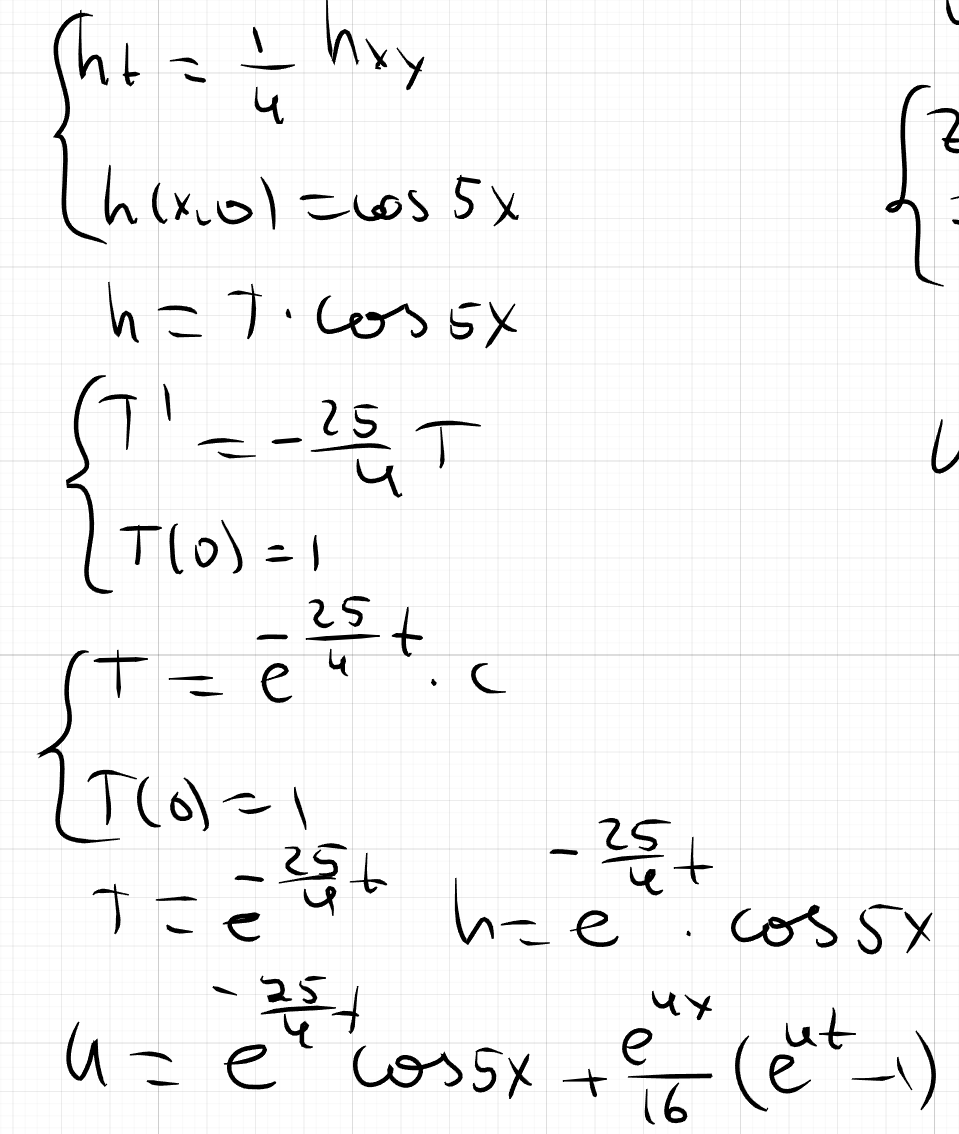 {ht = 1/4 hxy
{h(x,0) = cos 5x
h = T · cos 5x
{T' = -25/4 T
{T(0) = 1
{T = e^(-25/4 t) · c
{T(0) = 1
T = e^(-25/4 t)   h = e^(-25/4 t) · cos 5x
u = e^(-25/4 t) cos 5x + e^(4x)/16 (e^(4t) - 1)